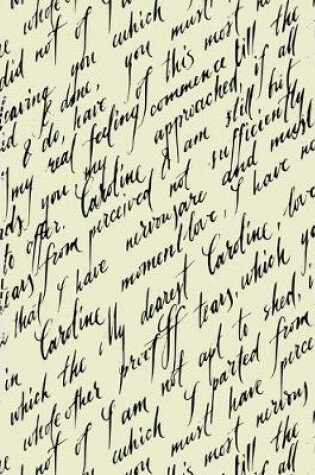 whole of
did not of which
leaving you you must
& done, of this most
& do, have commence till the
my real feeling approached, if all
you my & am still but
to offer. Caroline not sufficiently
from perceived and must
that I have nervous are I have no
Caroline moment love,
in the My dearest Caroline, love
which other proof If tears, which yo
whole I am not apt to shed,
not of which I parted from
you must have perce
is most nervous
till the
all